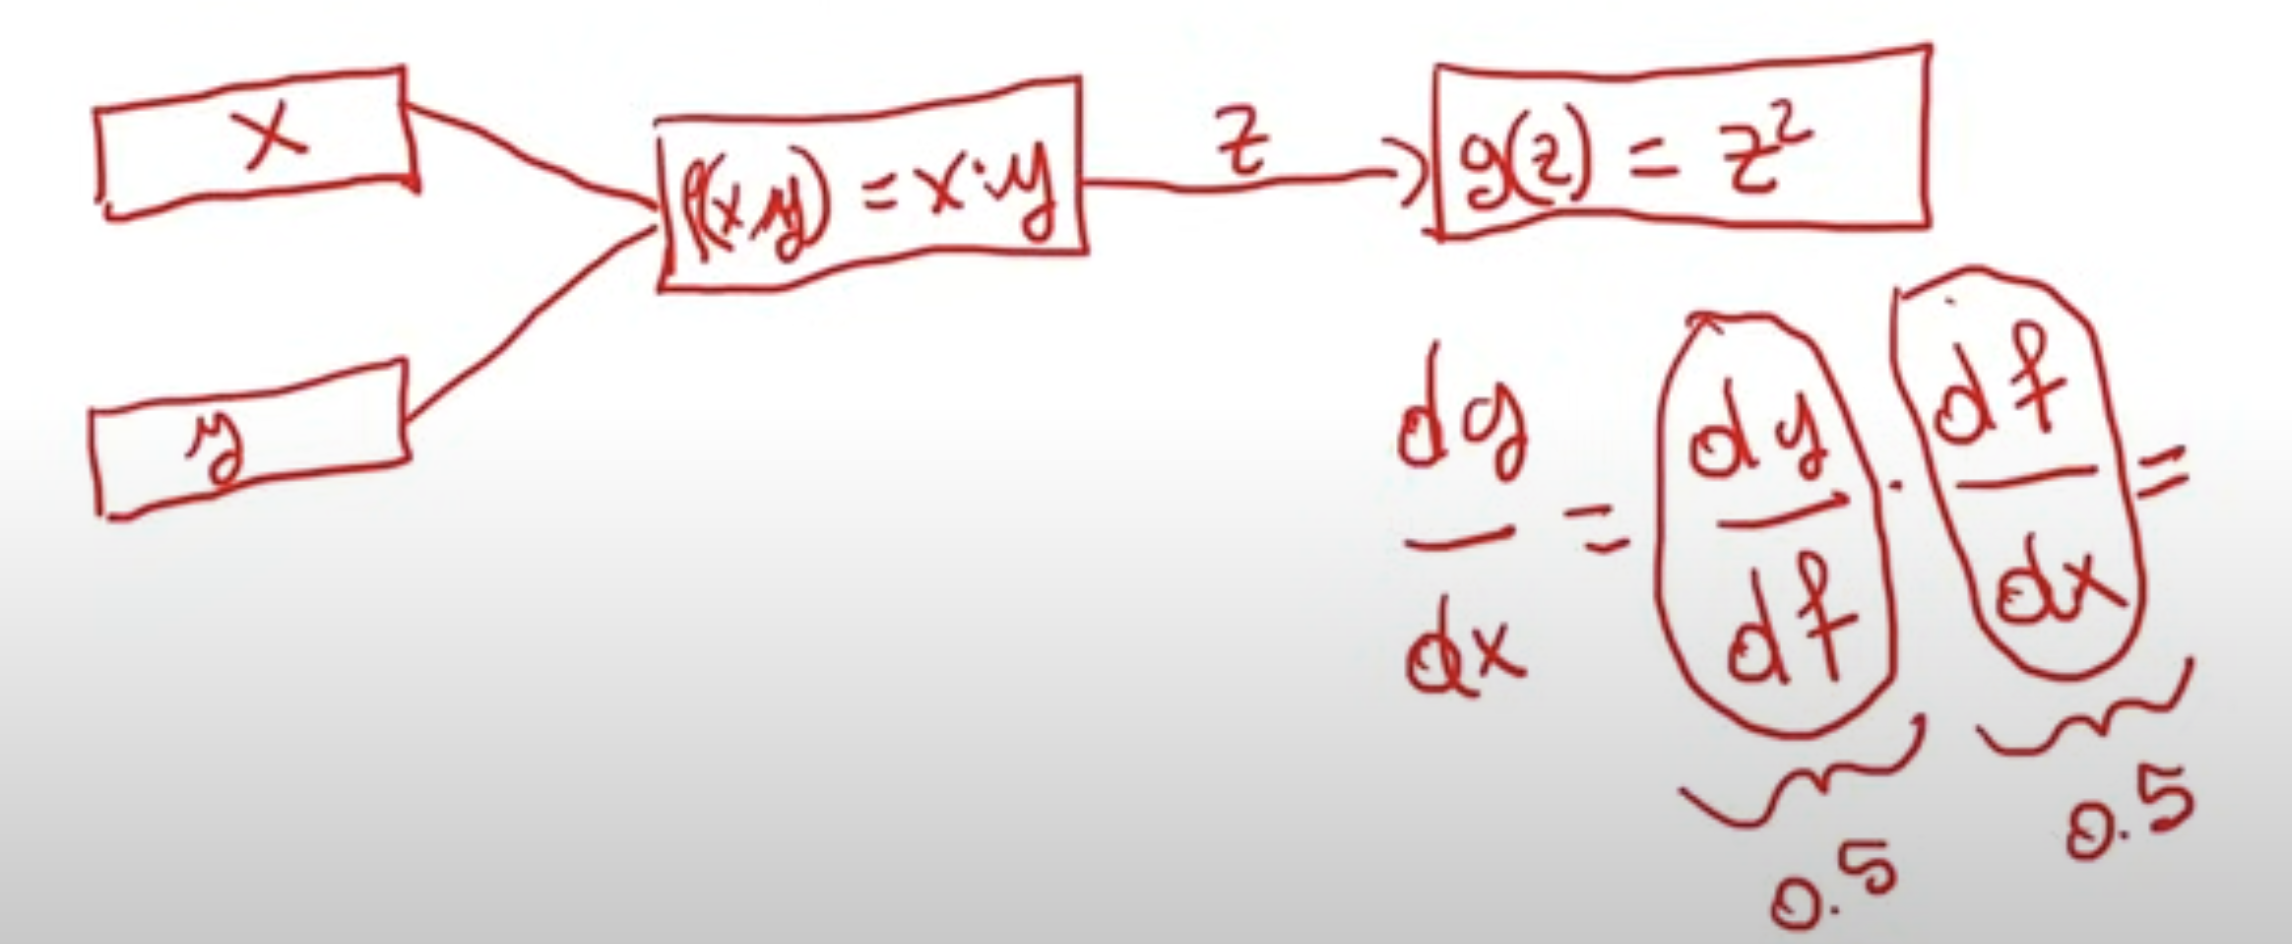 x
f(x,y) = x·y
z
g(z) = z²
y
dg/dx = dg/df · df/dx =
0.5
0.5